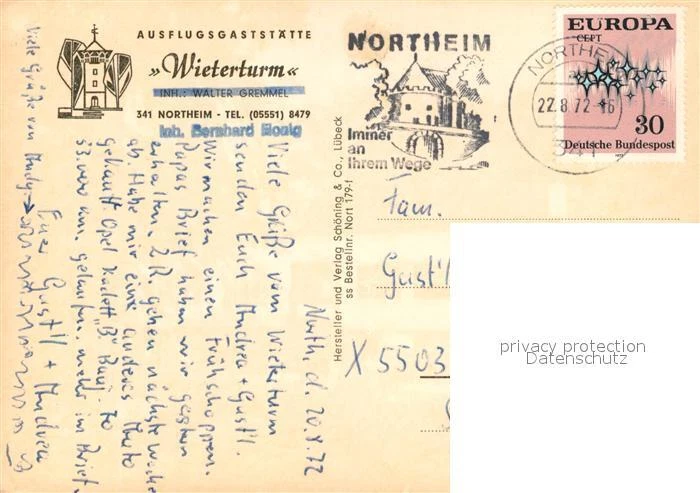 AUSFLUGSGASTSTÄTTE
»Wieterturm«
INH.: WALTER GREMMEL
341 NORTHEIM - TEL. (05551) 8479
Inh. Bernhard Honig
NORTHEIM
Immer
an
Ihrem Wege
NORTHEIM
22.8.72-16
341
EUROPA
CEPT
30
Deutsche Bundespost
Hersteller und Verlag Schöning & Co., Lübeck
ss Bestellnr. Nort 179-f
North., d. 20.8.72
Viele Grüße vom Wieterturm
senden Euch Andrea + Gust'l.
Wir machen einen Frühschoppen.
Papas Brief haben wir gestern
erhalten. Z.R. gehen nächste Woche
ab. Habe mir ein anderes Auto
gekauft. Opel Kadett "B" Bauj. 70
53.000 km. gelaufen. mehr im Brief.
Euer Gust'l + Andrea
Viele Grüße von Andy
Fam.
Gust'l
X 5503
privacy protection
Datenschutz